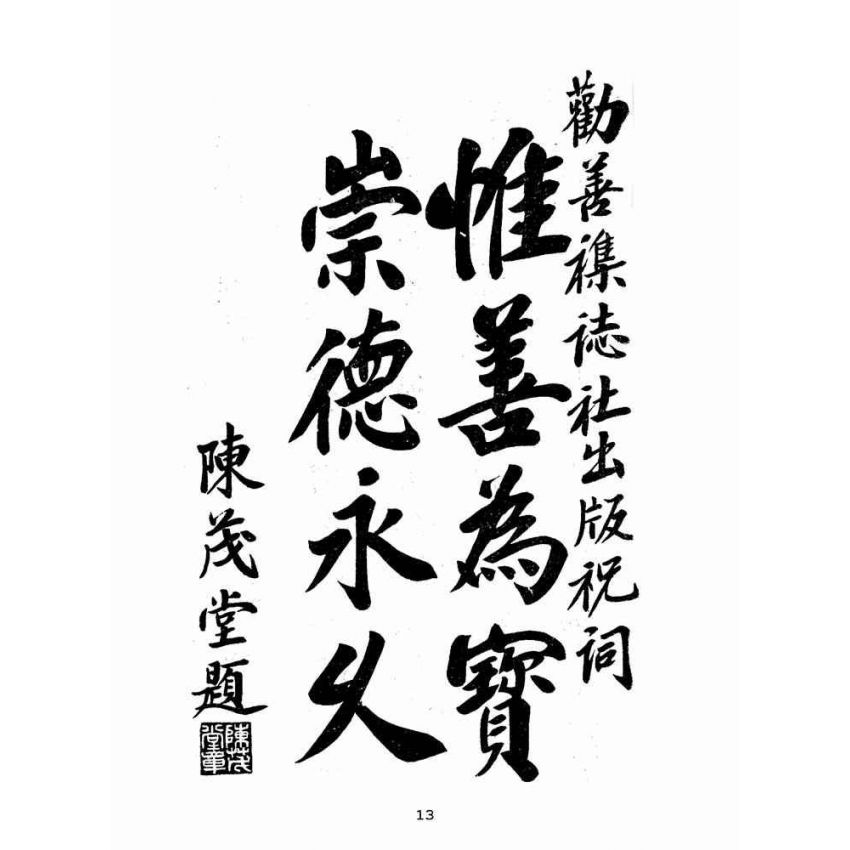 勸善襍誌社出版祝詞
惟善為寶
崇德永久
陳茂堂題
陳茂堂章
13